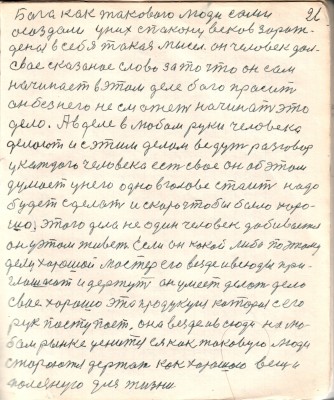 21
Бога как такового люди сами
создали у них спокону веков зарож-
дена в себя такая мысл. он человек дал
свое сказаное слово за то что он сам
начинает в этом деле бого просит
он без него не сможет начинат это
дело. А в деле в любом руки человека
делают и с этим делом ведут разговор
у каждого человека ест свое он об этом
думает у него одно в голове стоит надо
будет сделат и скоро чтобы было хоро-
шо. этого дела не один человек добивается
он у этом живет. Если он какой либо по этому
делу хороший мастер его везде и всюды при-
глашают и держут он умеет делот дело
свое хорошо эта продукция которая с его
рук паступает, она везде и всюдо на лю-
бом рынке ценится как таковую люди
стараются держат как хорошаю вещ и
полезную для жизни